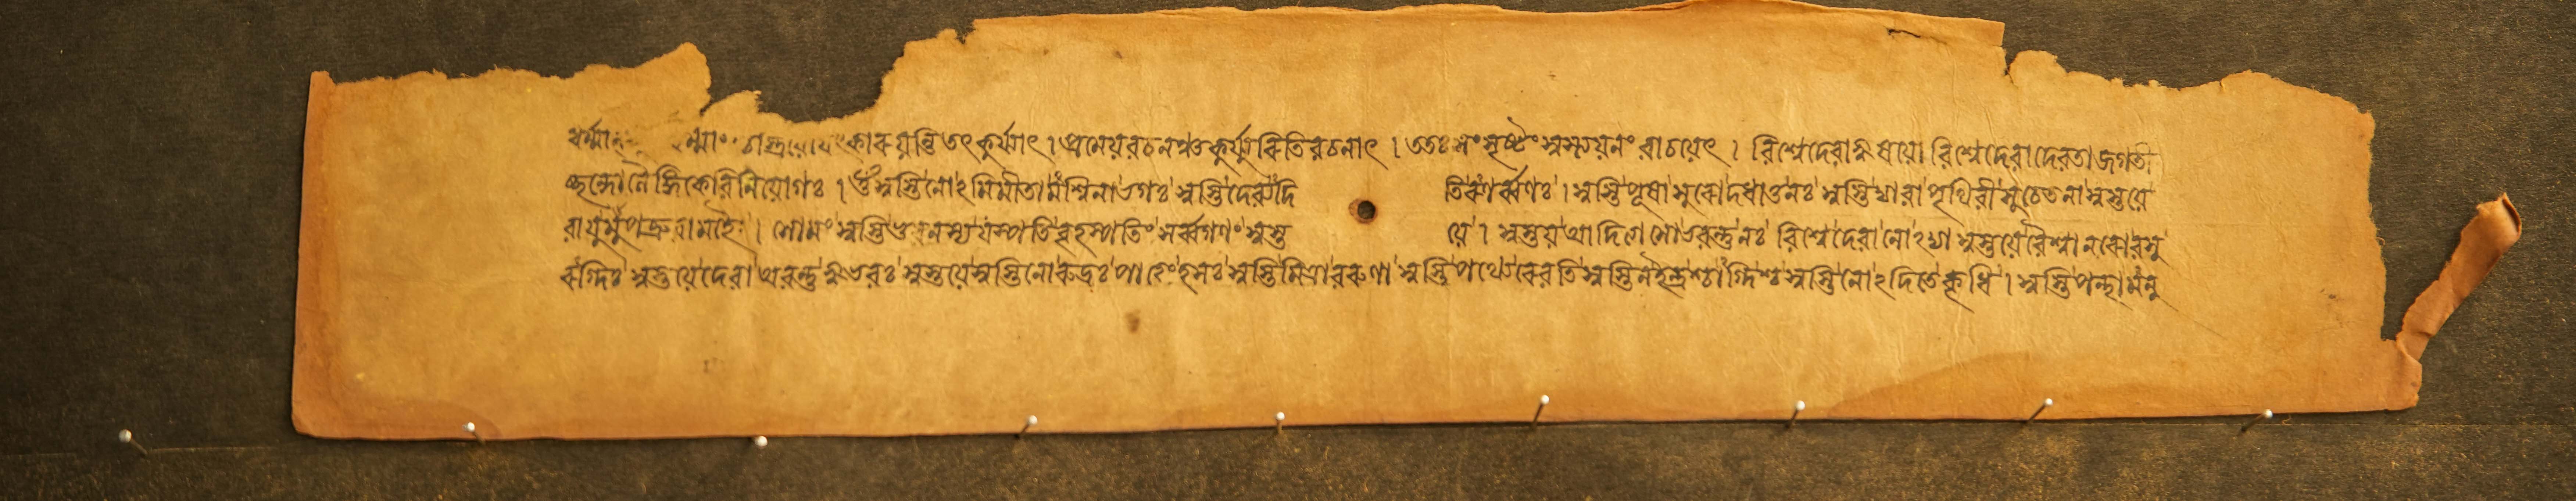 তৎকুর্য্যাৎ । ততঃ সংসৃষ্টং স্বস্ত্যয়নং বাচয়েৎ । বিশ্বেদেবাঋষয়ো বিশ্বেদেবাদেবতাজগতী
বিনিয়োগঃ । ওঁ স্বস্তিনোঽমিমীতামশ্বিনাভগঃ স্বস্তিদেব্যদি তিরণর্ব্বণঃ । স্বস্তিপূষাঅসুরোদধাতুনঃ স্বস্তিদ্যাবাপৃথিবীসুচেতনাস্বস্তয়ে
বায়ুমুপব্রুবামহৈ । সোমং স্বস্তিভুবনস্যযস্পতিবৃহস্পতিং সর্ব্বগণং স্বস্ত য়ে । স্বস্তয়আদিত্যেসোভবন্তুনঃ বিশ্বেদেবানোঽদ্যাস্বস্তয়েবৈশ্বানরোবসু
রগ্নিঃ স্বস্তয়েদেবাঅবন্তুঋভবঃ স্বস্তয়েস্বস্তিনোরুদ্রঃ পাত্বংহসঃ স্বস্তিমিত্রাবরুণা স্বস্তিপথ্যেরেবতিস্বস্তিনইন্দ্রশ্চাগ্নিশ্চস্বস্তিনোঽদিতেকৃধি । স্বস্তিপন্থামনু